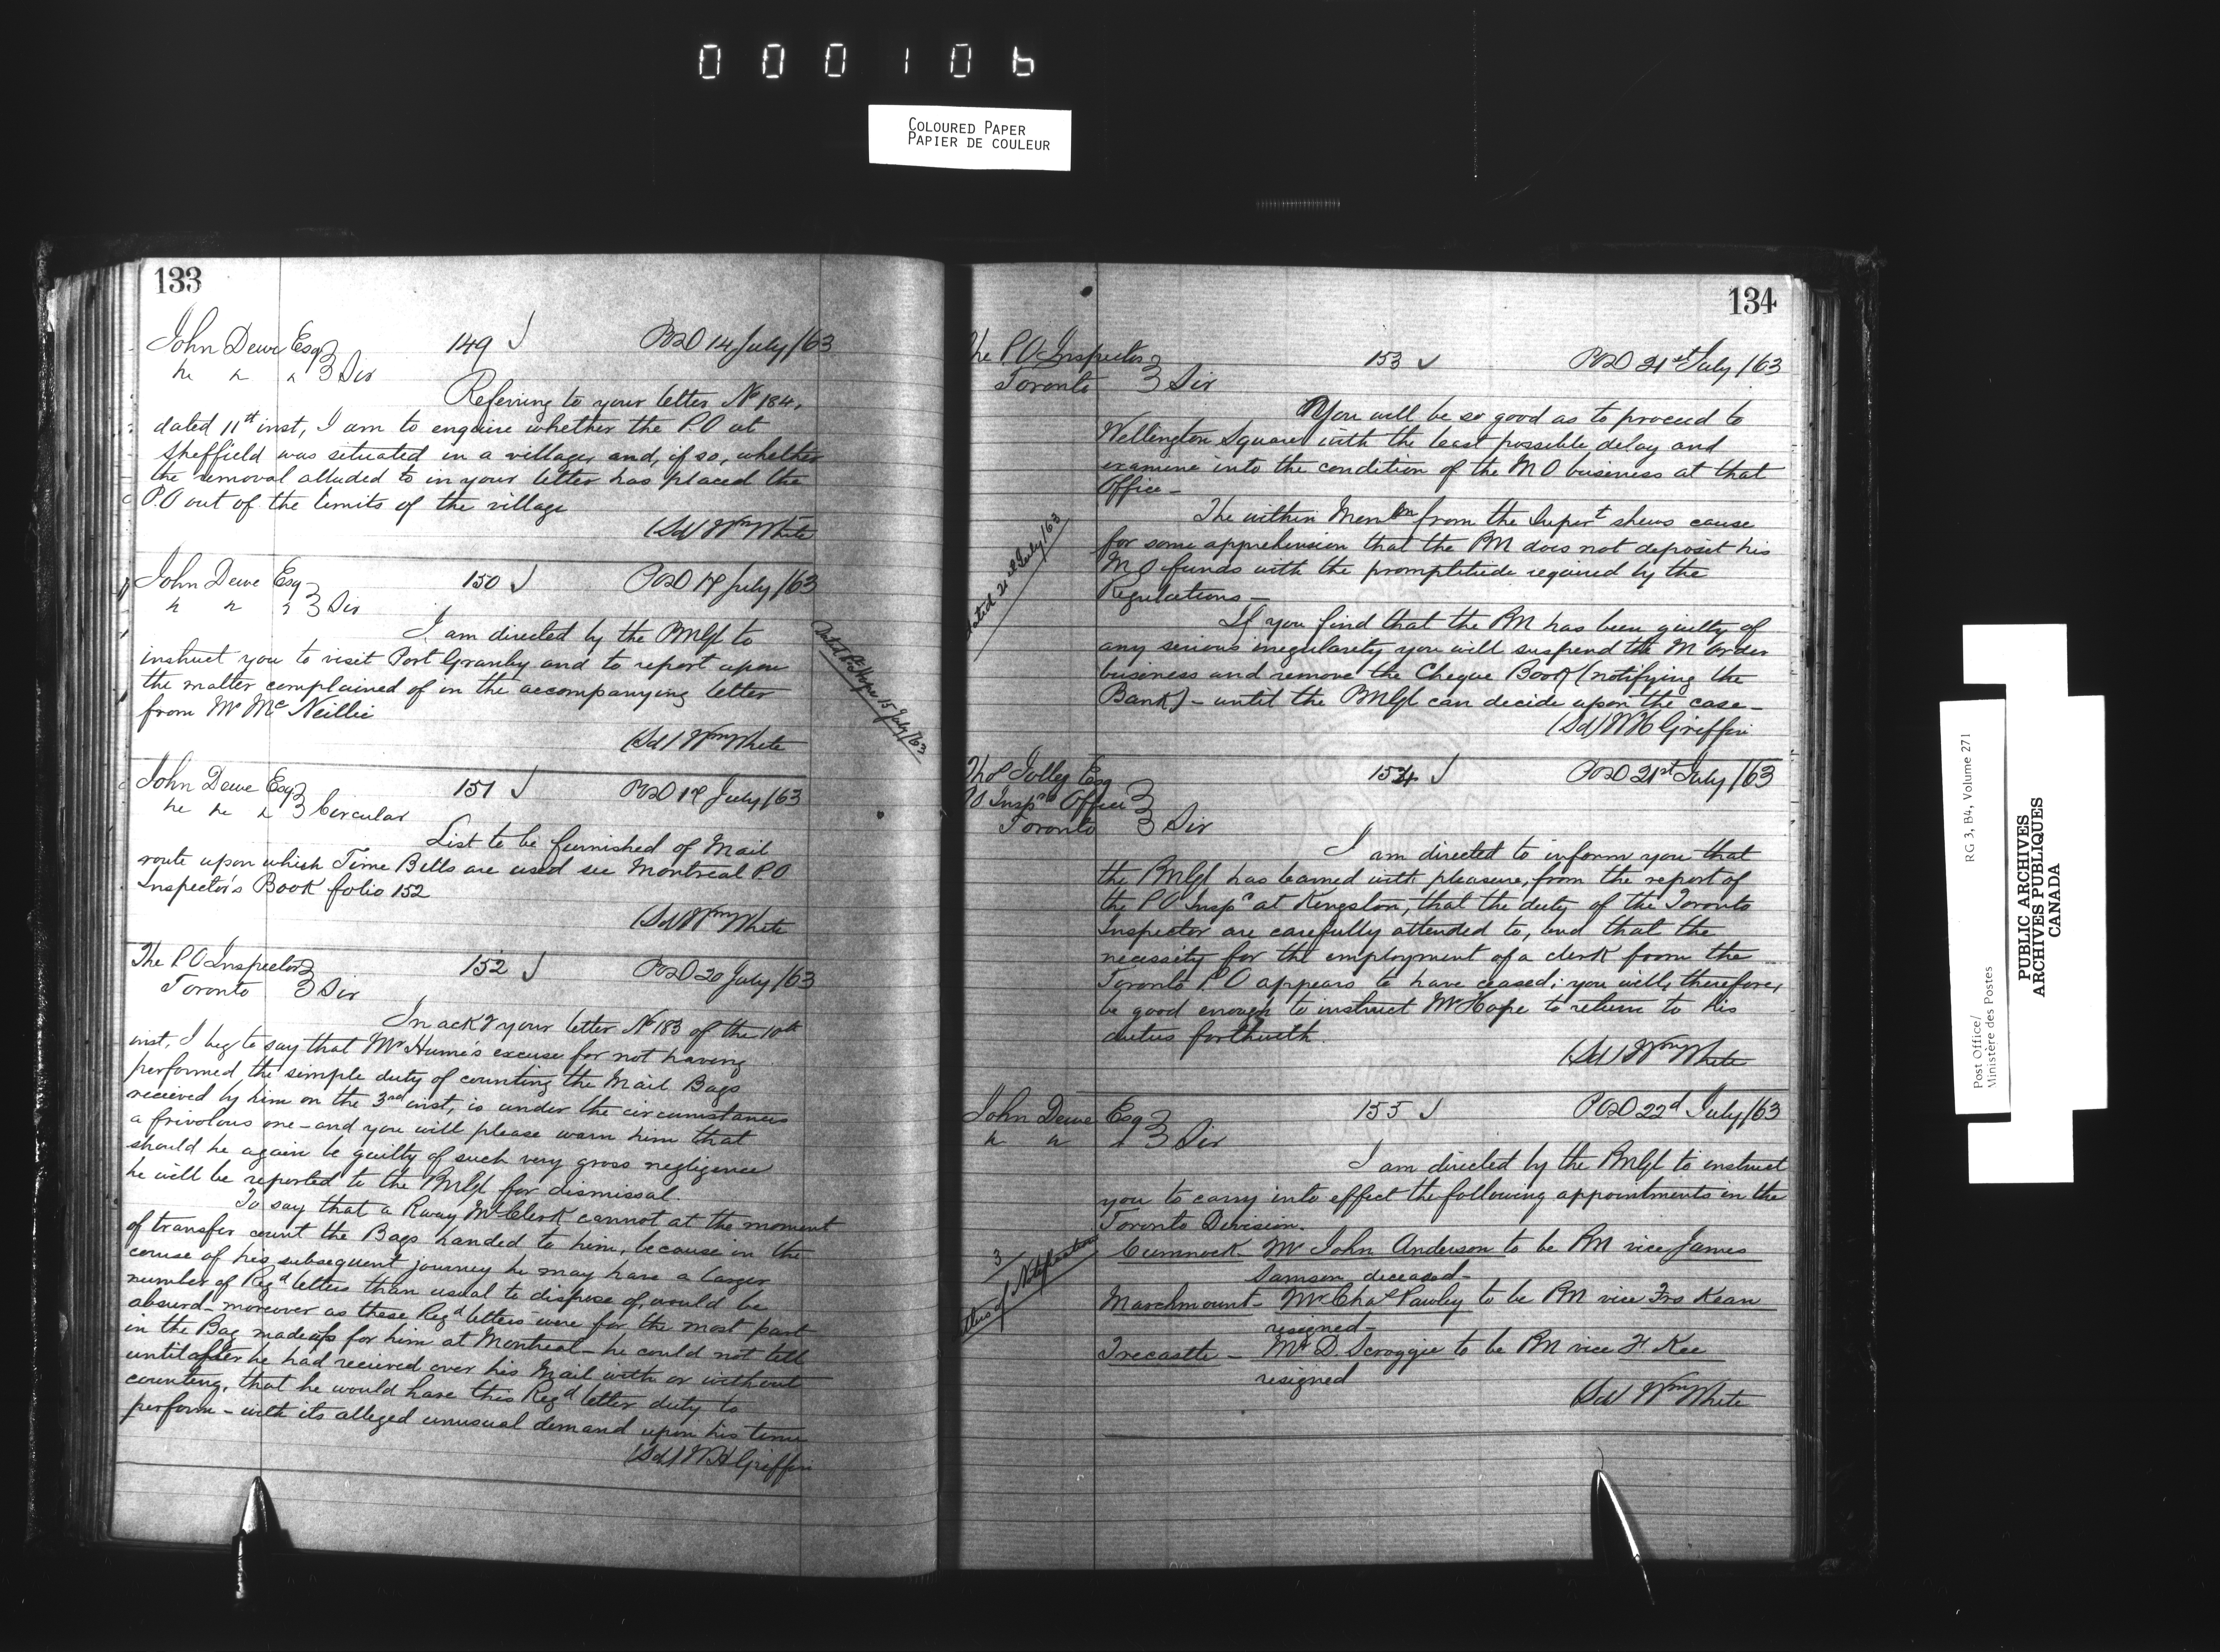 000106
COLOURED PAPER
PAPIER DE COULEUR
133
John Dewe Esq 149 ✓ POD 14 July/63
" " " Sir
Referring to your letter No 184,
dated 11th inst, I am to enquire whether the P.O at
Sheffield was situated in a village, and, if so, whether
the removal alluded to in your letter has placed the
P.O out of the limits of the village
(Sd) Wm White
John Dewe Esq 150 ✓ POD 17 July/63
" " " Sir
I am directed by the PMGl to
instruct you to visit Port Granby and to report upon
the matter complained of in the accompanying letter
from Mr McNeillie
(Sd) Wm White
dated Pt Hope 15 July/63
John Dewe Esq 151 ✓ POD 17 July/63
" " " Circular
List to be furnished of Mail
route upon which Time Bills are used see Montreal P.O
Inspector's Book folio 152
(Sd) Wm White
The P O Inspector 152 ✓ POD 20 July/63
Toronto Sir
In ackg your letter No 183 of the 10th
inst, I beg to say that Mr Hume's excuse for not having
performed the simple duty of counting the Mail Bags
recieved by him on the 3rd inst, is under the circumstances
a frivolous one - and you will please warn him that
should he again be guilty of such very gross negligence
he will be reported to the PMGl for dismissal.
To say that a Rway Ml Clerk cannot at the moment
of transfer count the Bags handed to him, because in the
course of his subsequent journey he may have a larger
number of Regd letters than usual to dispose of, would be
absurd - moreover as these Regd letters were for the most part
in the Bag made up for him at Montreal - he could not tell
until after he had recieved over his Mail with or without
counting, that he would have this Regd letter duty to
perform - with its alleged unusual demand upon his time
(Sd) W H Griffin
134
The P.O. Inspector 153 ✓ POD 21st July/63
Toronto Sir
You will be so good as to proceed to
Wellington Square with the least possible delay and
examine into the condition of the M O business at that
Office -
The within Memdm from the Supert shews cause
for some apprehension that the PM does not deposit his
M O funds with the promptitude required by the
Regulations -
dated 21st July/63
If you find that the PM has been guilty of
any serious irregularity you will suspend the M Order
business and remove the Cheque Book (notifying the
Bank) - until the PMGl can decide upon the case -
(Sd) W H Griffin
Thos Jolley Esq 154 ✓ POD 21st July/63
PO Insprs Office
Toronto Sir
I am directed to inform you that
the PMGl has learned with pleasure, from the report of
the P O Inspr at Kingston, that the duty of the Toronto
Inspector are carefully attended to, and that the
necessity for the employment of a clerk from the
Toronto P.O appears to have ceased; you will, therefore,
be good enough to instruct Mr Hope to return to his
duties forthwith.
(Sd) Wm White
John Dewe Esq 155 ✓ POD 22d July/63
" " " Sir
I am directed by the PMGl to instruct
you to carry into effect the following appointments in the
Toronto Division.
3
of Notification
Cumnock - Mr John Anderson to be PM vice James
Samson deceased -
Marchmount - Mr Chas Pawley to be PM vice Frs Kean
resigned -
Trecastle - Mr D. Scroggie to be PM vice F. Kee
resigned
(Sd) Wm White
RG 3, B4, Volume 271
Post Office/
Ministère des Postes
PUBLIC ARCHIVES
ARCHIVES PUBLIQUES
CANADA